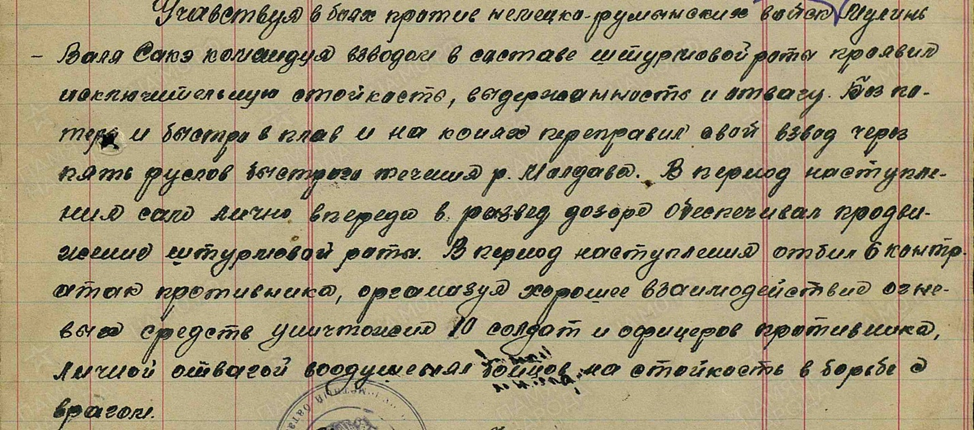 Учавствуя в боях против немецко-румынских войск Мулинь
- Валя Сакэ командуя взводом в составе штурмовой роты проявил
исключительную стойкость, выдержанность и отвагу. Без по-
терь и быстро в плав и на конях переправил свой взвод через
пять руслов быстрого течения р. Молдава. В период наступле-
ния сам лично впереди в развед дозоре обеспечивал продви-
жение штурмовой роты. В период наступления отбил 6 контр-
атак противника, организуя хорошее взаимодействие огне-
вых средств уничтожил 10 солдат и офицеров противника,
личной отвагой воодушевлял бойцов на стойкость в борьбе с
врагом.